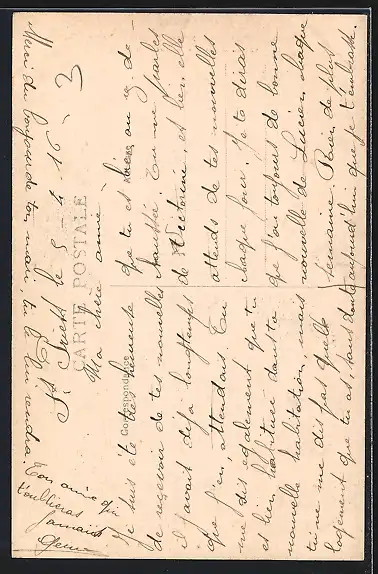 CARTE POSTALE
Correspondance
St Priest le 5
Ma chère amie
Je suis été très heureuse
de recevoir de tes nouvelles
il favait déjà longtemps
que j'en attendais. Tu
me dis également que tu
es bien habituée dans ta
nouvelle habitation, mais
tu ne me dis pas quelle
logement que tu as, sans doute
que tu es au rez de-
chaussée. Tu me parles
de Victorine et bien, elle
attends de tes nouvelles
chaque jour. Je te dirais
que j'ai toujours de bonne
nouvelle de Lucien chaque
semaine. Rien de plus
aujourd'hui que je t'embrasse.
Merci du bonjour de ton mari, tu le lui rendra.
Ton amie qui
t'oublieras
jamais